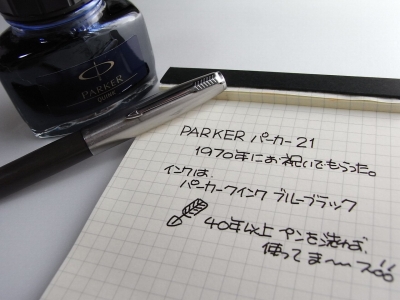 PARKER
QUINK
PARKER パーカー 21
1970年にお祝いでもらった。
インクは、
パーカークインク ブルーブラック
40年以上 ペンを洗わず、
使ってま〜〜す